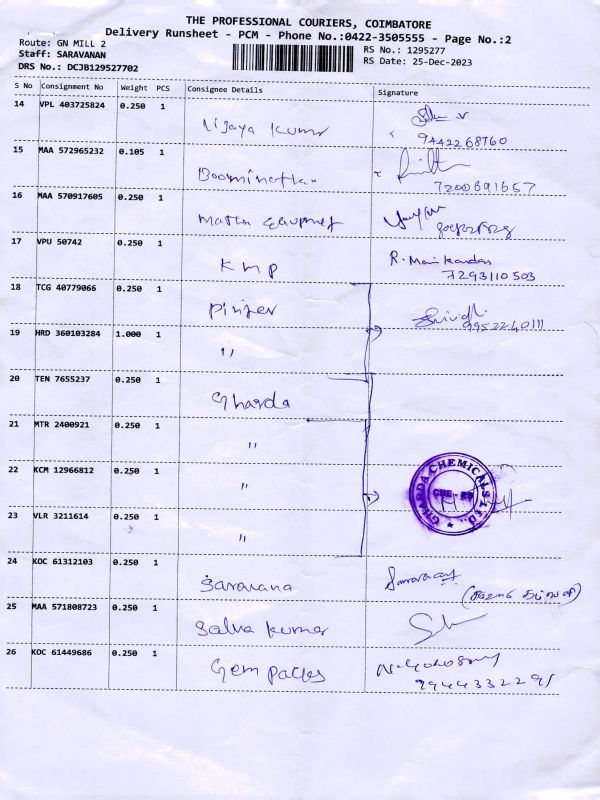 THE PROFESSIONAL COURIERS, COIMBATORE
Delivery Runsheet - PCM - Phone No.:0422-3505555 - Page No.:2
Route: GN MILL 2
Staff: SARAVANAN
DRS No.: DCJB129527702
RS No.: 1295277
RS Date: 25-Dec-2023
S No Consignment No Weight PCS Consignee Details Signature
14 VPL 403725824 0.250 1 Vijaya Kumar
9442268760
15 MAA 572965232 0.105 1 Boominathan
7200891657
16 MAA 570917605 0.250 1
17 VPU 50742 0.250 1 KMP R. Manikandan
7293110503
18 TCG 40779066 0.250 1
9952240111
19 HRD 360103284 1.000 1 "
20 TEN 7655237 0.250 1 Gharda
21 MTR 2400921 0.250 1 "
22 KCM 12966812 0.250 1 "
GHARDA CHEMICALS LTD.
23 VLR 3211614 0.250 1 "
24 KOC 61312103 0.250 1 Saravana
25 MAA 571808723 0.250 1 Selva Kumar
26 KOC 61449686 0.250 1 Gem packs
9944332291